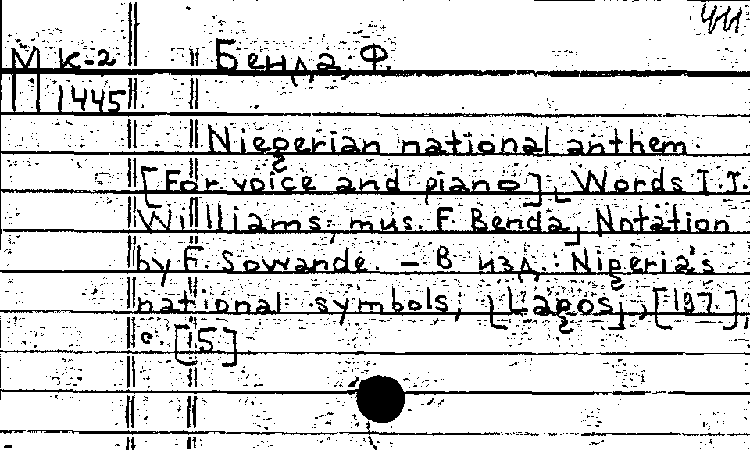 М К-2
1445
Бенда, Ф.
Niegerian national anthem.
[For voice and piano], Words I.I.
Williams, mus. F. Benda, Notation
by F. Sowande. – В изд.: Nigeria's
national symbols, [Lagos], [197],
с. [5]